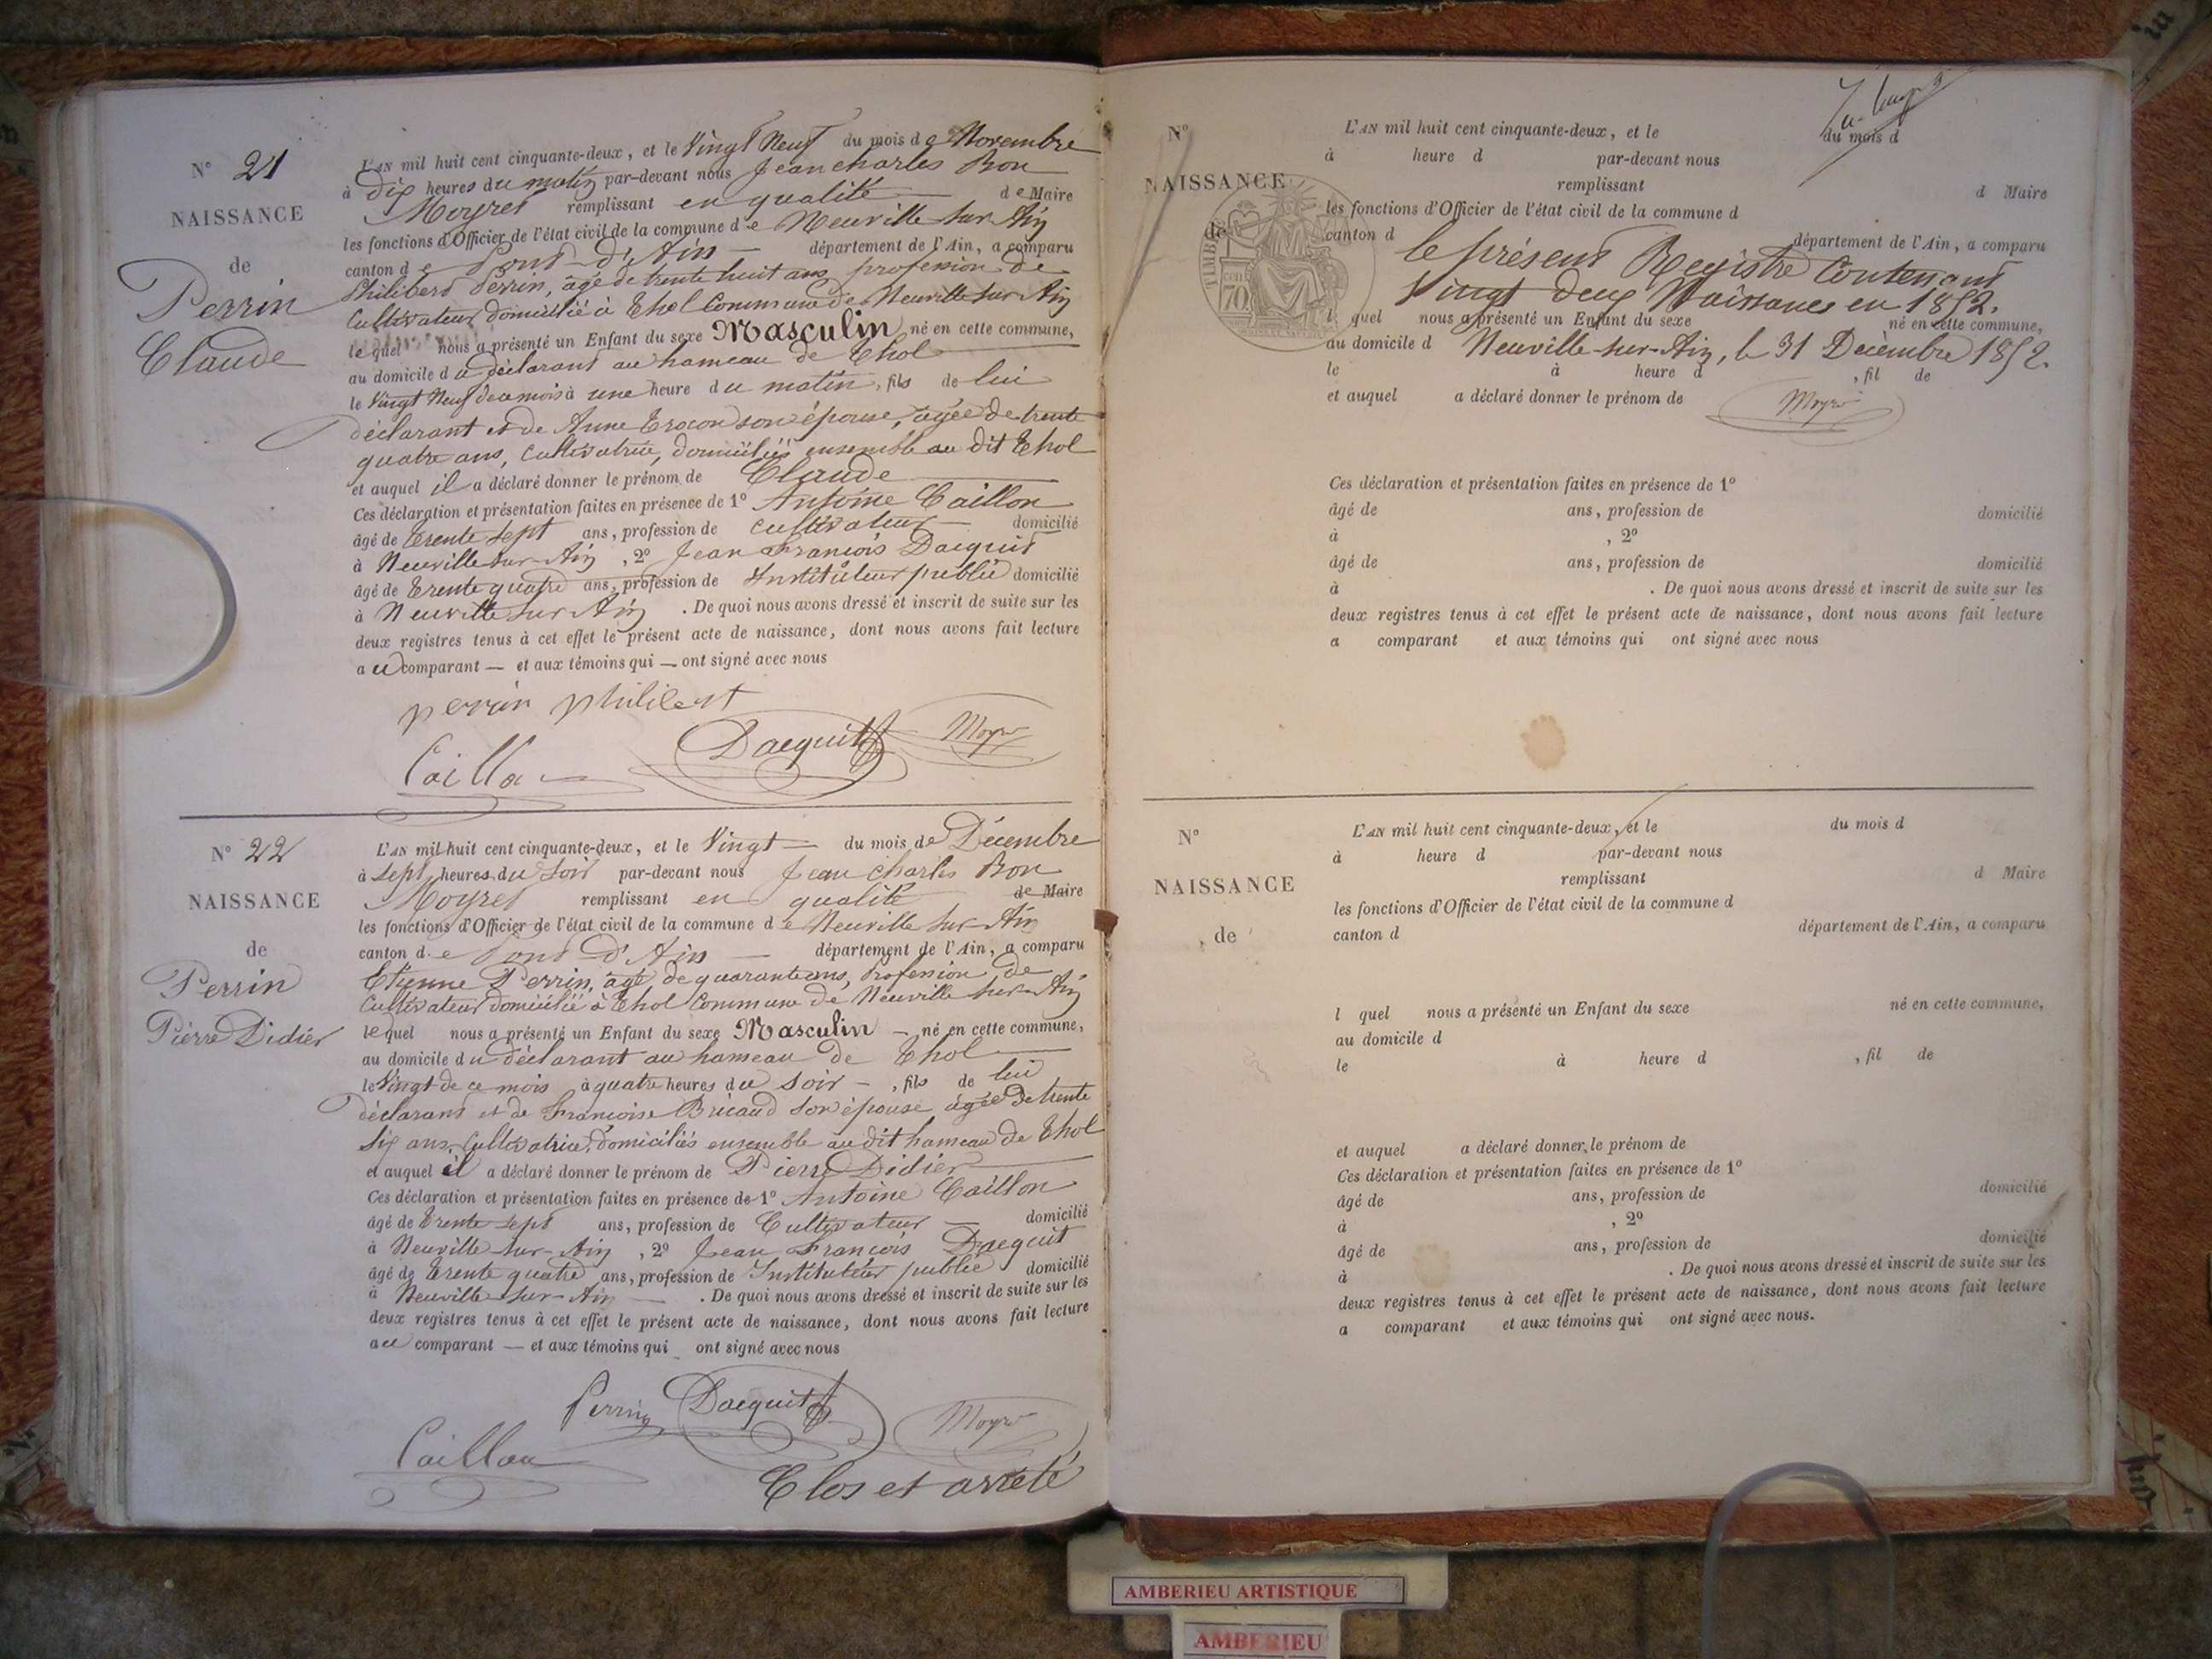 N° 21
NAISSANCE
de
Perrin
Claude
L'AN mil huit cent cinquante-deux, et le Vingt Neuf du mois de Novembre
à dix heures du matin par-devant nous Jean charles Bon
Moyret remplissant en qualité de Maire
les fonctions d'Officier de l'état civil de la commune de Neuville sur Ain
canton de Pont d'Ain département de l'Ain, a comparu
Philibert Perrin, âgé de trente huit ans, profession de
Cultivateur domicilié à Thol Commune de Neuville sur Ain
lequel nous a présenté un Enfant du sexe Masculin, né en cette commune,
au domicile du déclarant au hameau de Thol
le Vingt Neuf de ce mois à une heure du matin, fils de lui
déclarant et de Anne Trocon son épouse, âgée de trente
quatre ans, Cultivatrice, domiciliés ensemble au dit Thol
et auquel il a déclaré donner le prénom de Claude
Ces déclaration et présentation faites en présence de 1° Antoine Caillon
âgé de trente sept ans, profession de cultivateur domicilié
à Neuville sur Ain, 2° Jean François Dacquit
âgé de trente quatre ans, profession de Instituteur public domicilié
à Neuville sur Ain. De quoi nous avons dressé et inscrit de suite sur les
deux registres tenus à cet effet le présent acte de naissance, dont nous avons fait lecture
au comparant — et aux témoins qui — ont signé avec nous
perrin philibert
Dacquit Moyret
Caillon
N° 22
NAISSANCE
de
Perrin
Pierre Didier
L'AN mil huit cent cinquante-deux, et le Vingt — du mois de Décembre
à sept heures du soir par-devant nous Jean Charles Bon
Moyret remplissant en qualité de Maire
les fonctions d'Officier de l'état civil de la commune de Neuville sur Ain
canton de Pont d'Ain département de l'Ain, a comparu
Etienne Perrin, âgé de quarante ans, profession de
Cultivateur domicilié à Thol Commune de Neuville sur Ain
lequel nous a présenté un Enfant du sexe Masculin — né en cette commune,
au domicile du déclarant au hameau de Thol
le Vingt de ce mois à quatre heures du soir —, fils de lui
déclarant et de Françoise Bricaud son épouse âgée de trente
six ans, Cultivatrice, domiciliés ensemble au dit hameau de Thol
et auquel il a déclaré donner le prénom de Pierre Didier
Ces déclaration et présentation faites en présence de 1° Antoine Caillon
âgé de trente sept ans, profession de Cultivateur — domicilié
à Neuville sur Ain, 2° Jean François Dacquit
âgé de trente quatre ans, profession de Instituteur public domicilié
à Neuville sur Ain —. De quoi nous avons dressé et inscrit de suite sur les
deux registres tenus à cet effet le présent acte de naissance, dont nous avons fait lecture
au comparant — et aux témoins qui ont signé avec nous
Perrin Dacquit Moyret
Caillon
Clos et arrêté
N°
NAISSANCE
de
TIMBRE
cen
70
L'AN mil huit cent cinquante-deux, et le du mois d
à heure d par-devant nous
remplissant d Maire
les fonctions d'Officier de l'état civil de la commune d
canton d département de l'Ain, a comparu
le présent Registre Contenant
Vingt deux Naissances en 1852.
l quel nous a présenté un Enfant du sexe né en cette commune,
au domicile d Neuville-sur-Ain, le 31 Décembre 1852.
le à heure d , fil de
et auquel a déclaré donner le prénom de
Moyret
Ces déclaration et présentation faites en présence de 1°
âgé de ans, profession de domicilié
à , 2°
âgé de ans, profession de domicilié
à . De quoi nous avons dressé et inscrit de suite sur les
deux registres tenus à cet effet le présent acte de naissance, dont nous avons fait lecture
a comparant et aux témoins qui ont signé avec nous
N°
NAISSANCE
de
L'AN mil huit cent cinquante-deux, et le du mois d
à heure d par-devant nous
remplissant d Maire
les fonctions d'Officier de l'état civil de la commune d
canton d département de l'Ain, a comparu
l quel nous a présenté un Enfant du sexe né en cette commune,
au domicile d
le à heure d , fil de
et auquel a déclaré donner le prénom de
Ces déclaration et présentation faites en présence de 1°
âgé de ans, profession de domicilié
à , 2°
âgé de ans, profession de domicilié
à . De quoi nous avons dressé et inscrit de suite sur les
deux registres tenus à cet effet le présent acte de naissance, dont nous avons fait lecture
a comparant et aux témoins qui ont signé avec nous.
AMBERIEU ARTISTIQUE
AMBERIEU